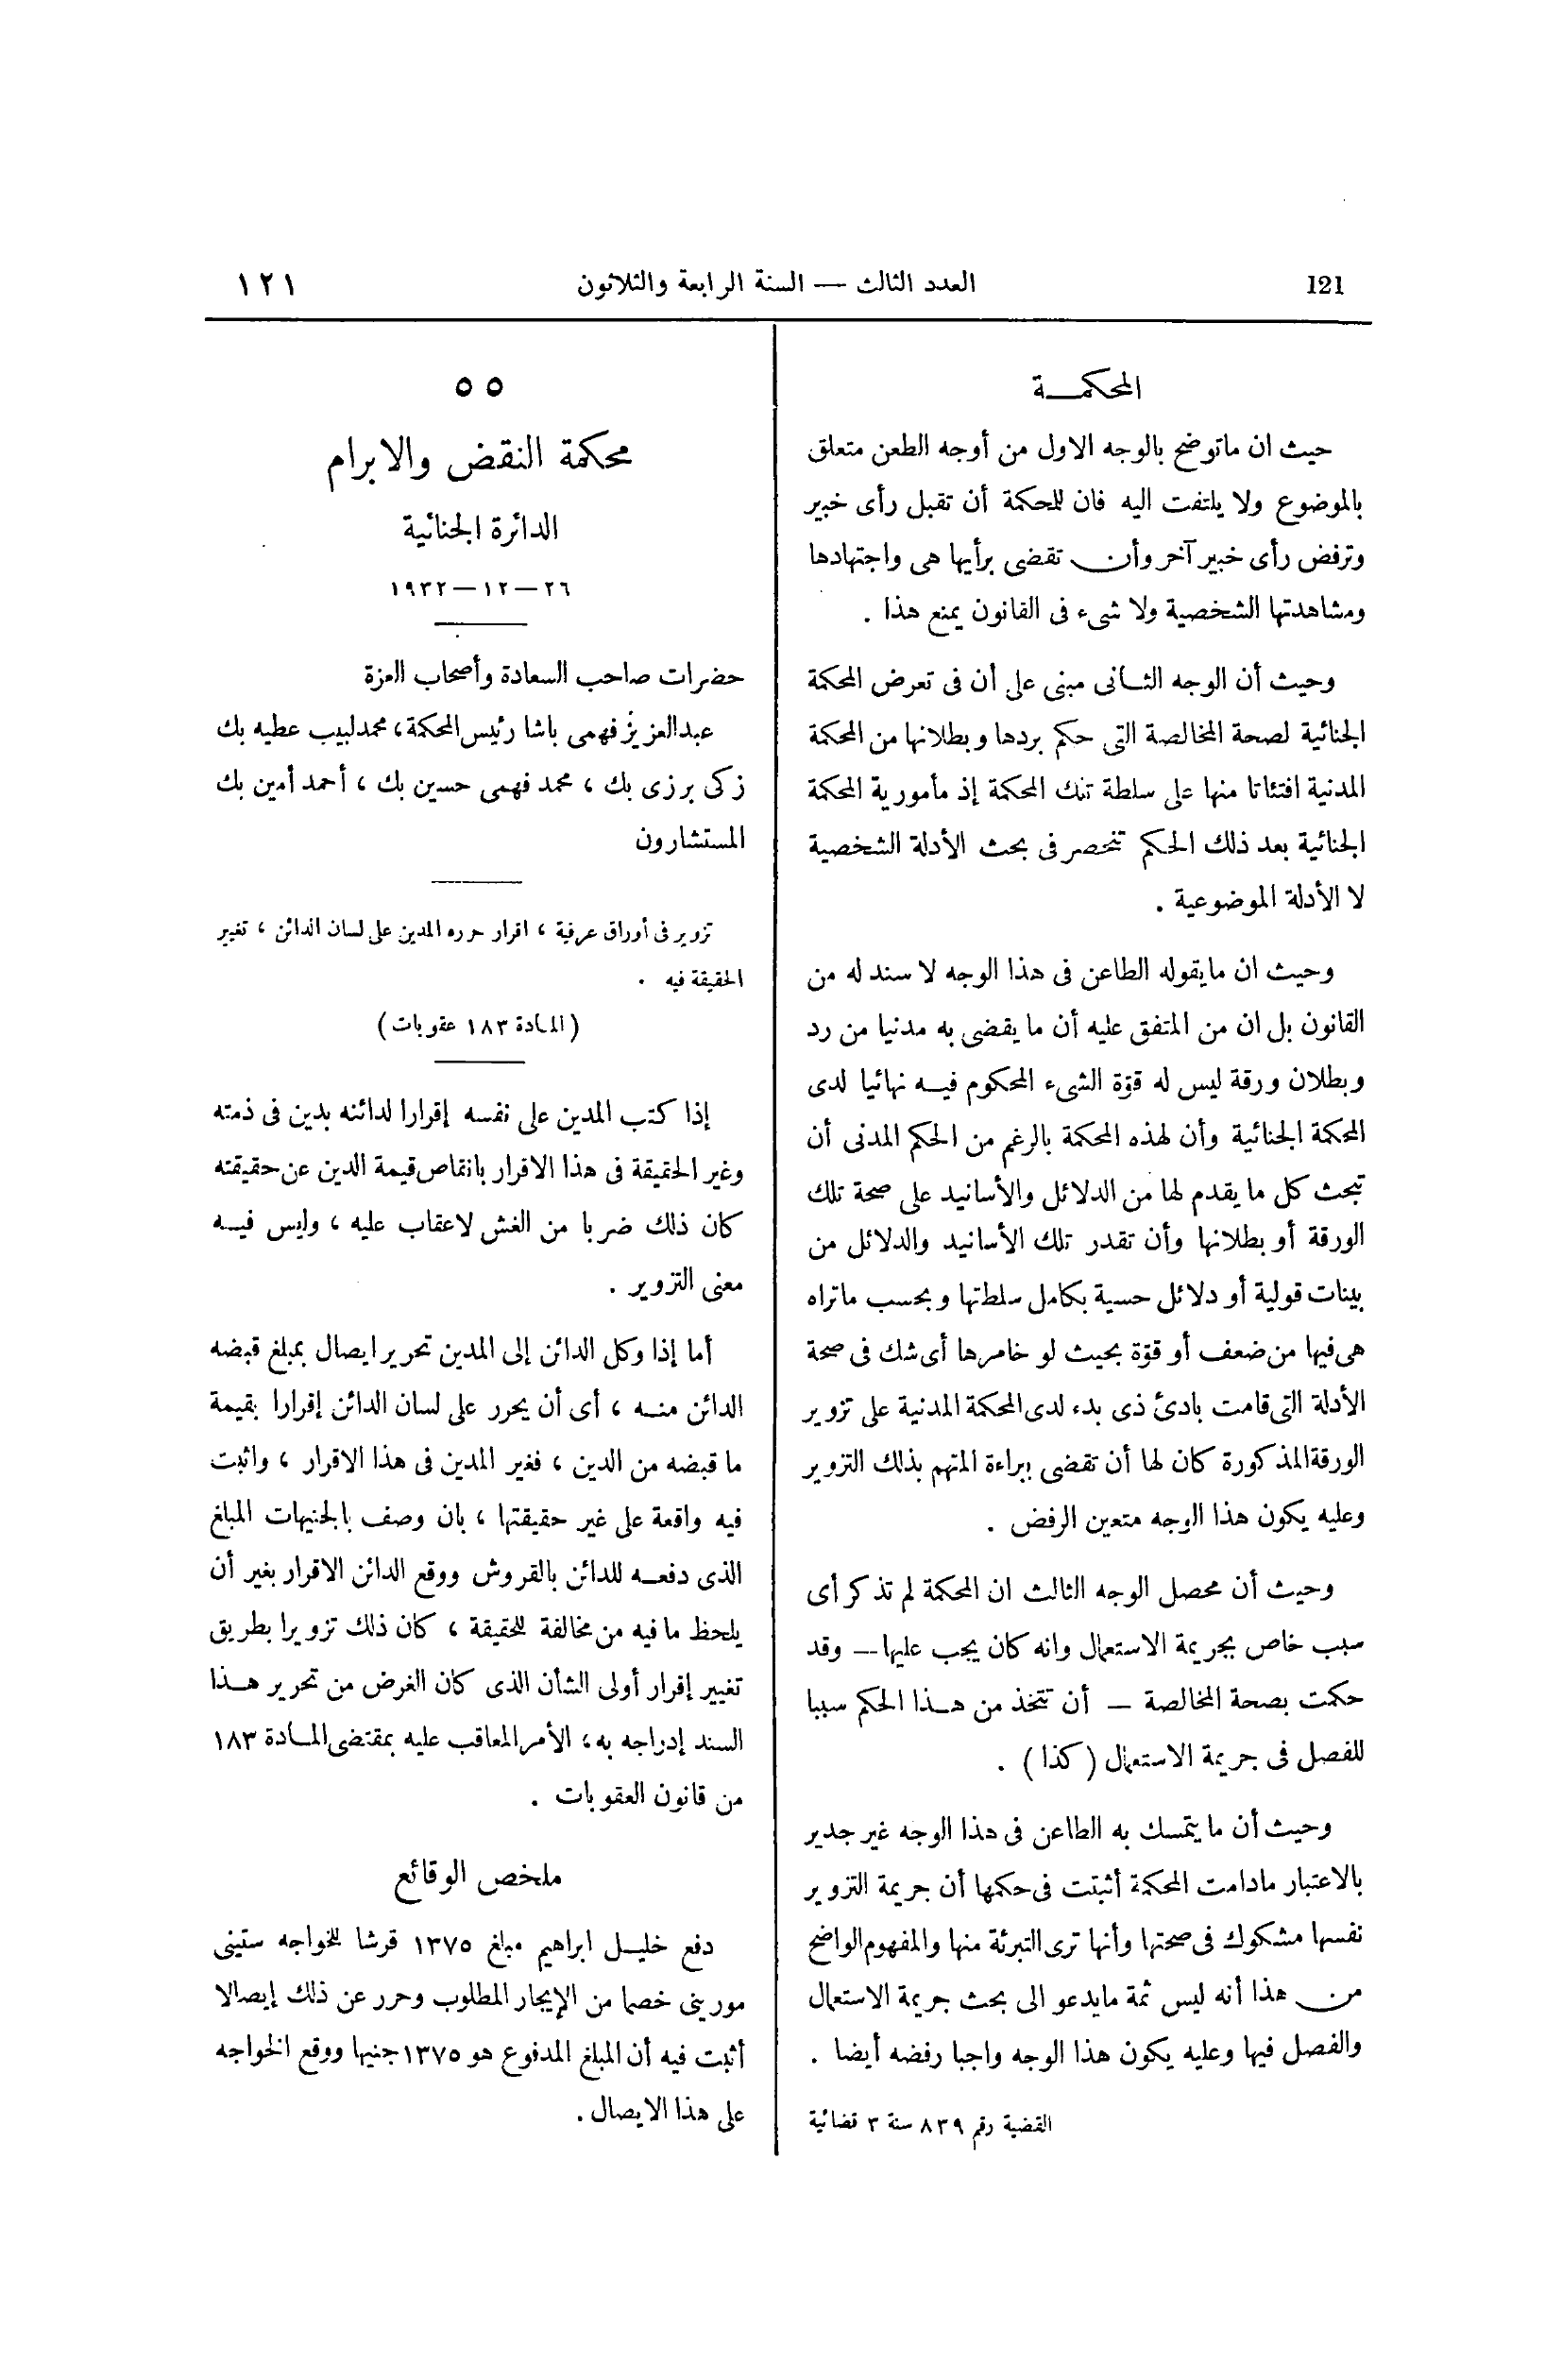 121
العدد الثالث — السنة الرابعة والثلاثون
١٢١
المحكمــة
حيث ان ماتوضح بالوجه الاول من أوجه الطعن متعلق
بالموضوع ولا يلتفت اليه فان للمحكمة أن تقبل رأى خبير
وترفض رأى خبير آخر وأن تقضى برأيها هى واجتهادها
ومشاهدتها الشخصية ولا شىء فى القانون يمنع هذا .
وحيث أن الوجه الثـانى مبنى على أن فى تعرض المحكمة
الجنائية لصحة المخالصة التى حكم بردها وبطلانها من المحكمة
المدنية افتئاتا منها على سلطة تلك المحكمة إذ مأمورية المحكمة
الجنائية بعد ذلك الحكم تنحصر فى بحث الأدلة الشخصية
لا الأدلة الموضوعية .
وحيث ان مايقوله الطاعن فى هذا الوجه لا سند له من
القانون بل ان من المتفق عليه أن ما يقضى به مدنيا من رد
وبطلان ورقة ليس له قوّة الشىء المحكوم فيـه نهائيا لدى
المحكمة الجنائية وأن لهذه المحكمة بالرغم من الحكم المدنى أن
تبحث كل ما يقدم لها من الدلائل والأسانيد على صحة تلك
الورقة أو بطلانها وأن تقدر تلك الأسانيد والدلائل من
بينات قولية أو دلائل حسية بكامل سلطتها وبحسب ماتراه
هى فيها من ضعف أو قوّة بحيث لو خامرها أى شك فى صحة
الأدلة التى قامت بادئ ذى بدء لدى المحكمة المدنية على تزوير
الورقة المذكورة كان لها أن تقضى ببراءة المتهم بذلك التزوير
وعليه يكون هذا الوجه متعين الرفض .
وحيث أن محصل الوجه الثالث ان المحكمة لم تذكر أى
سبب خاص بجريمة الاستعمال وانه كان يجب عليها — وقد
حكمت بصحة المخالصة — أن تتخذ من هـذا الحكم سببا
للفصل فى جريمة الاستعمال (كذا) .
وحيث أن ما يتمسك به الطاعن فى هذا الوجه غير جدير
بالاعتبار مادامت المحكمة أثبتت فى حكمها أن جريمة التزوير
نفسها مشكوك فى صحتها وأنها ترى التبرئة منها والمفهوم الواضح
من هذا أنه ليس ثمة مايدعو الى بحث جريمة الاستعمال
والفصل فيها وعليه يكون هذا الوجه واجبا رفضه أيضا .
القضية رقم ٨٣٩ سنة ٣ قضائية
٥٥
محكمة النقض والابرام
الدائرة الجنائية
٢٦—١٢—١٩٣٢
حضرات صاحب السعادة وأصحاب العزة
عبدالعزيز فهمى باشا رئيس المحكمة، محمد لبيب عطيه بك
زكى برزى بك ، محمد فهمى حسين بك ، أحمد أمين بك
المستشارون
تزوير فى أوراق عرفية ، اقرار حرره المدين على لسان الدائن ، تغيير
الحقيقة فيه .
(المادة ١٨٣ عقوبات)
إذا كتب المدين على نفسه إقرارا لدائنه بدين فى ذمته
وغير الحقيقة فى هذا الاقرار بانقاص قيمة الدين عن حقيقته
كان ذلك ضربا من الغش لاعقاب عليه ، وليس فيـه
معنى التزوير .
أما إذا وكل الدائن إلى المدين تحرير ايصال بمبلغ قبضه
الدائن منـه ، أى أن يحرر على لسان الدائن إقرارا بقيمة
ما قبضه من الدين ، فغير المدين فى هذا الاقرار ، واثبت
فيه واقعة على غير حقيقتها ، بان وصف بالجنيهات المبلغ
الذى دفعـه للدائن بالقروش ووقع الدائن الاقرار بغير أن
يلحظ ما فيه من مخالفة للحقيقة ، كان ذلك تزويرا بطريق
تغيير إقرار أولى الشأن الذى كان الغرض من تحرير هـذا
السند إدراجه به، الأمر المعاقب عليه بمقتضى المـادة ١٨٣
من قانون العقوبات .
ملخص الوقائع
دفع خليـل ابراهيم مبلغ ١٣٧٥ قرشا للخواجه ستينى
مورينى خصما من الإيجار المطلوب وحرر عن ذلك إيصالا
أثبت فيه أن المبلغ المدفوع هو ١٣٧٥ جنيها ووقع الخواجه
على هذا الايصال .